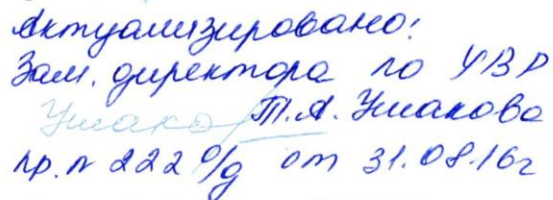 Актуализировано:
Зам. директора по УВР
Ушако Т.А. Ушакова
пр. № 222 о/д от 31.08.16г